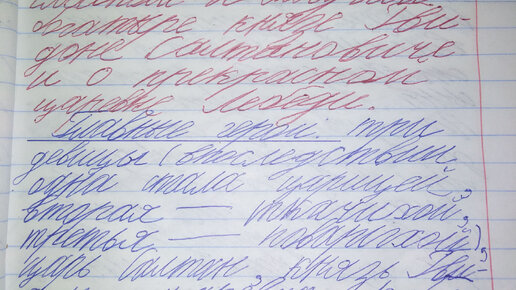 богатыре князе Гви-
доне Салтановиче
и о прекрасной
царевне Лебеди.
Главные герои: три
девицы (впоследствии
одна стала царицей,
вторая — ткачихой,
третья — поварихой),
царь Салтан, князь Гви-